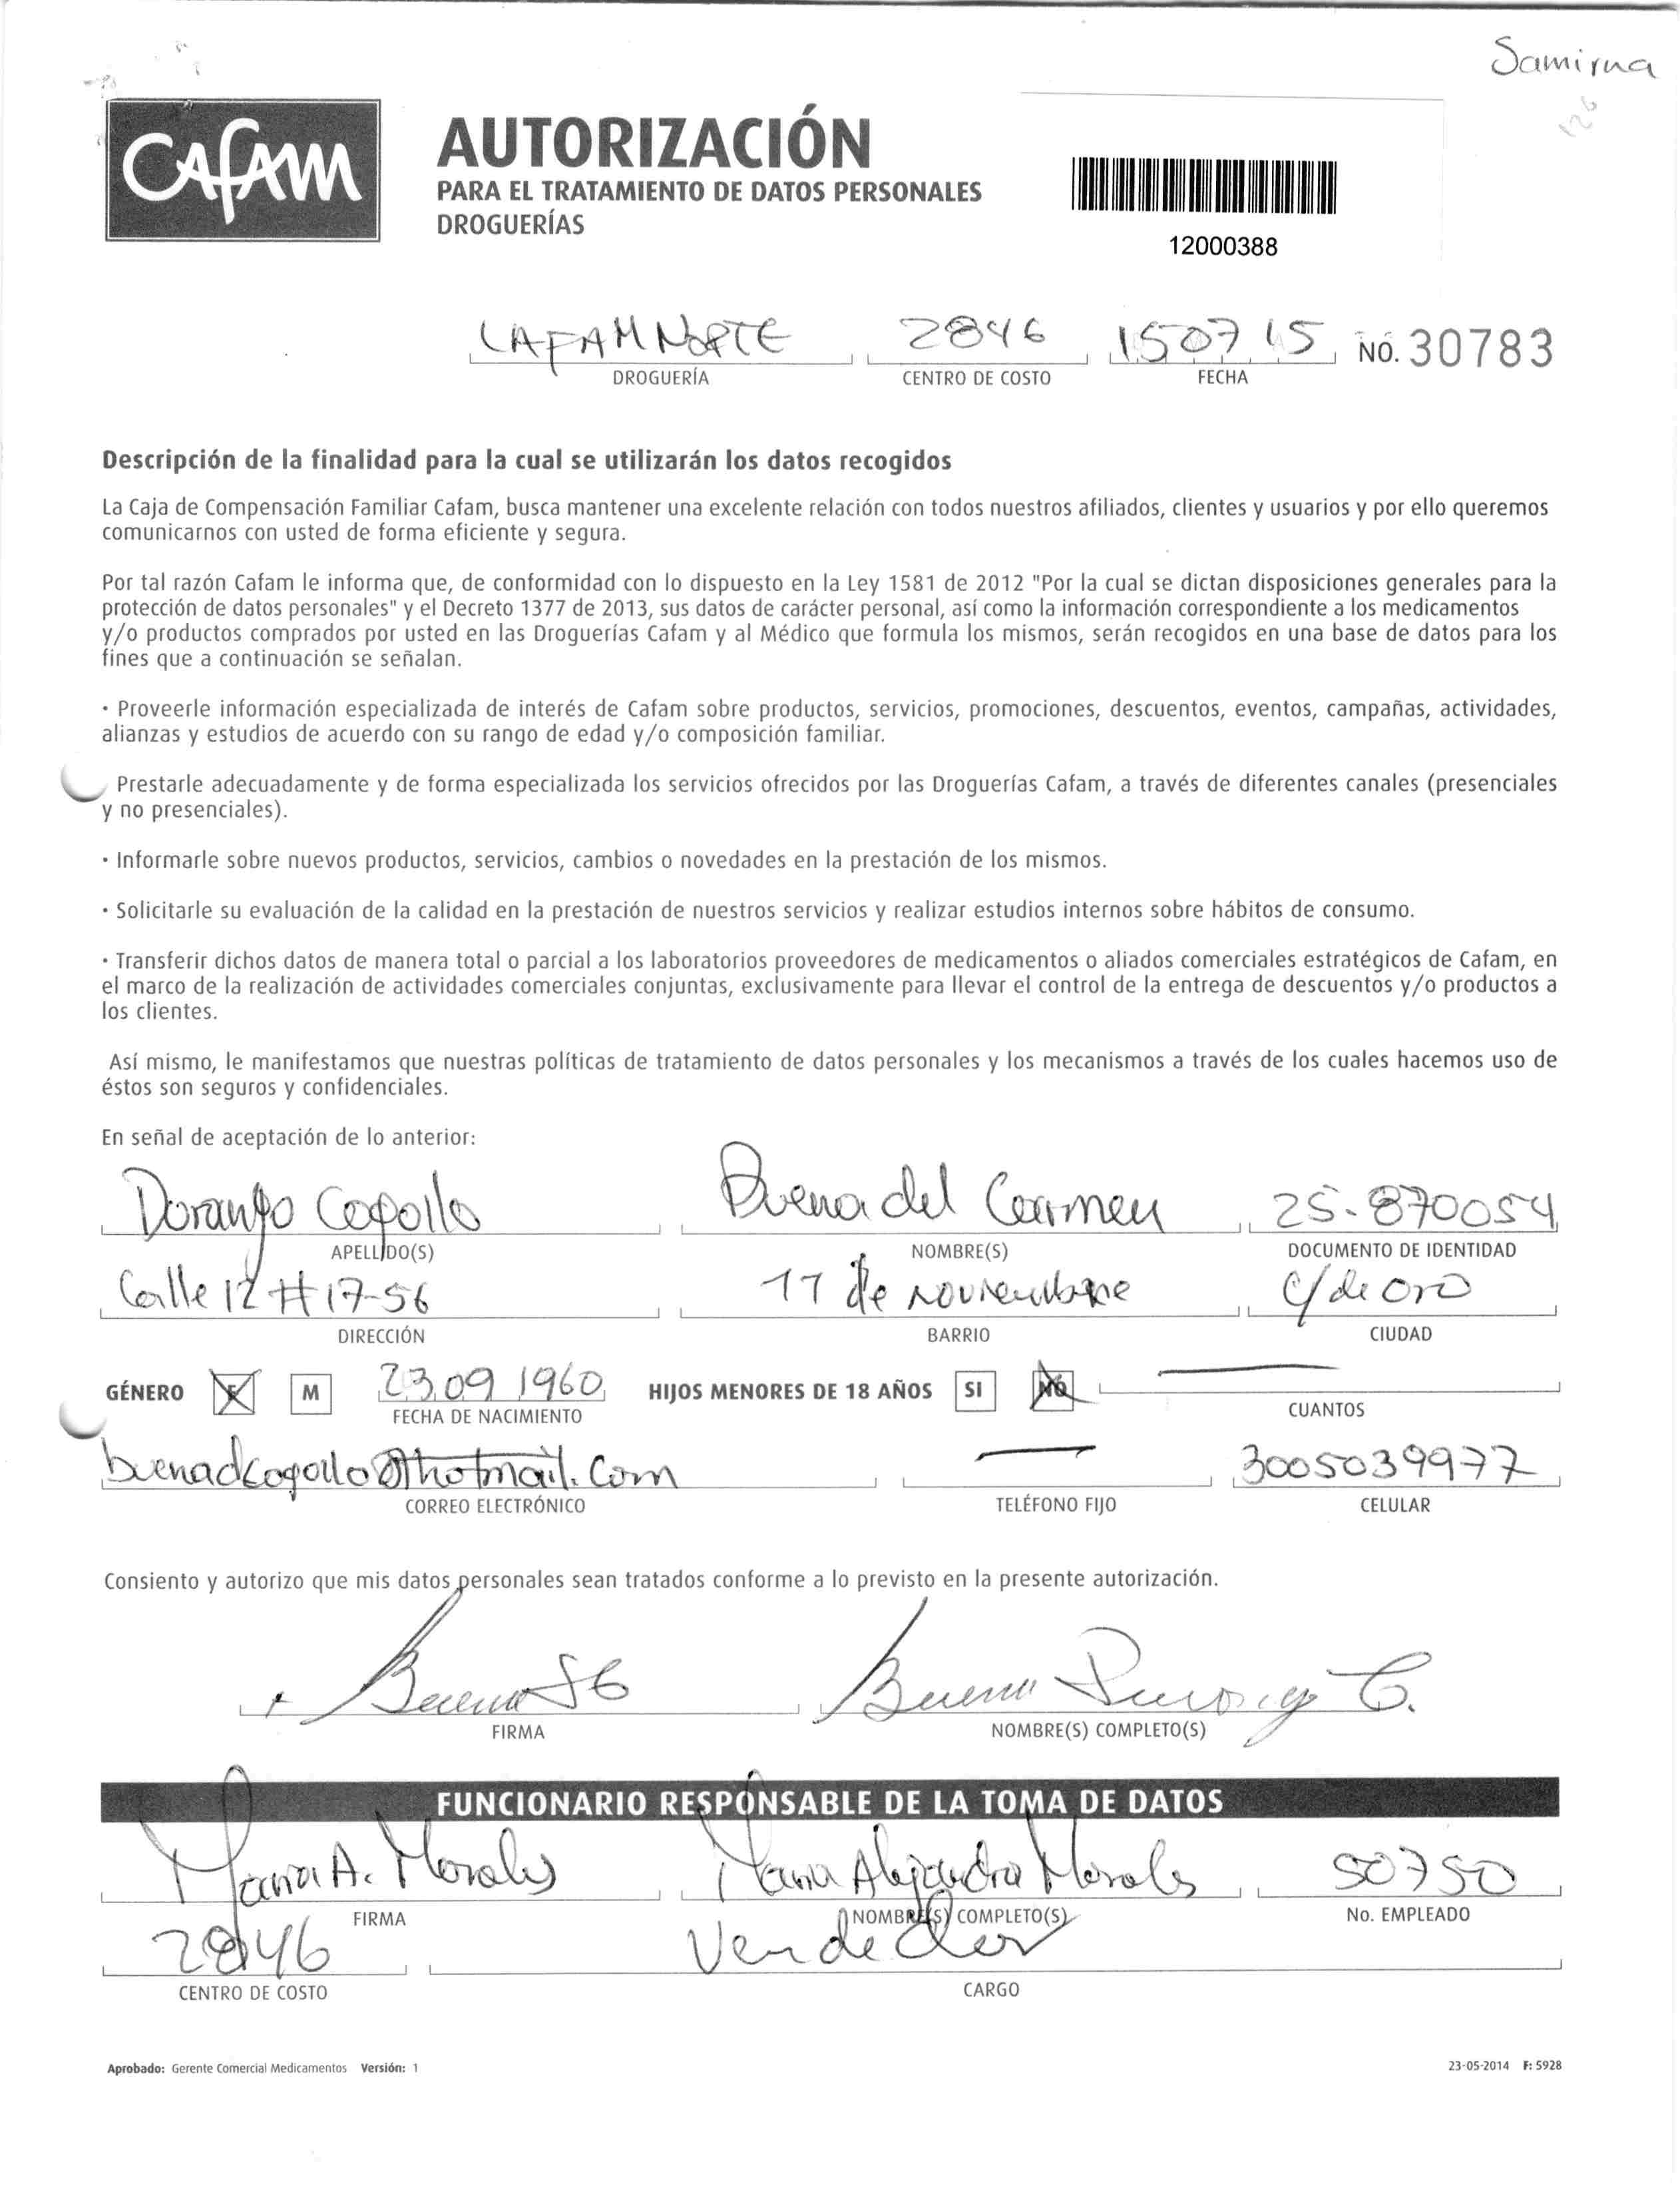 Samirna
126
CAFAM
AUTORIZACIÓN
PARA EL TRATAMIENTO DE DATOS PERSONALES
DROGUERÍAS
12000388
CAFAM NORTE 2846 150715 NO. 30783
DROGUERÍA CENTRO DE COSTO FECHA
Descripción de la finalidad para la cual se utilizarán los datos recogidos
La Caja de Compensación Familiar Cafam, busca mantener una excelente relación con todos nuestros afiliados, clientes y usuarios y por ello queremos
comunicarnos con usted de forma eficiente y segura.
Por tal razón Cafam le informa que, de conformidad con lo dispuesto en la Ley 1581 de 2012 "Por la cual se dictan disposiciones generales para la
protección de datos personales" y el Decreto 1377 de 2013, sus datos de carácter personal, así como la información correspondiente a los medicamentos
y/o productos comprados por usted en las Droguerías Cafam y al Médico que formula los mismos, serán recogidos en una base de datos para los
fines que a continuación se señalan.
· Proveerle información especializada de interés de Cafam sobre productos, servicios, promociones, descuentos, eventos, campañas, actividades,
alianzas y estudios de acuerdo con su rango de edad y/o composición familiar.
Prestarle adecuadamente y de forma especializada los servicios ofrecidos por las Droguerías Cafam, a través de diferentes canales (presenciales
y no presenciales).
· Informarle sobre nuevos productos, servicios, cambios o novedades en la prestación de los mismos.
· Solicitarle su evaluación de la calidad en la prestación de nuestros servicios y realizar estudios internos sobre hábitos de consumo.
· Transferir dichos datos de manera total o parcial a los laboratorios proveedores de medicamentos o aliados comerciales estratégicos de Cafam, en
el marco de la realización de actividades comerciales conjuntas, exclusivamente para llevar el control de la entrega de descuentos y/o productos a
los clientes.
Así mismo, le manifestamos que nuestras políticas de tratamiento de datos personales y los mecanismos a través de los cuales hacemos uso de
éstos son seguros y confidenciales.
En señal de aceptación de lo anterior:
Dorango Cogollo Buena del Carmen 25-870054
APELLIDO(S) NOMBRE(S) DOCUMENTO DE IDENTIDAD
Calle 12 # 17-56 11 de noviembre C/de oro
DIRECCIÓN BARRIO CIUDAD
GÉNERO F M 23 09 1960 HIJOS MENORES DE 18 AÑOS SI NO
FECHA DE NACIMIENTO CUANTOS
buenadcogollo@hotmail.com 3005039977
CORREO ELECTRÓNICO TELÉFONO FIJO CELULAR
Consiento y autorizo que mis datos personales sean tratados conforme a lo previsto en la presente autorización.
Buena Buena C.
FIRMA NOMBRE(S) COMPLETO(S)
FUNCIONARIO RESPONSABLE DE LA TOMA DE DATOS
Maria A. Morales Maria Alejandra Morales 50750
FIRMA NOMBRE(S) COMPLETO(S) No. EMPLEADO
2846 Vendedor
CENTRO DE COSTO CARGO
Aprobado: Gerente Comercial Medicamentos Versión: 1 23-05-2014 F: 5928